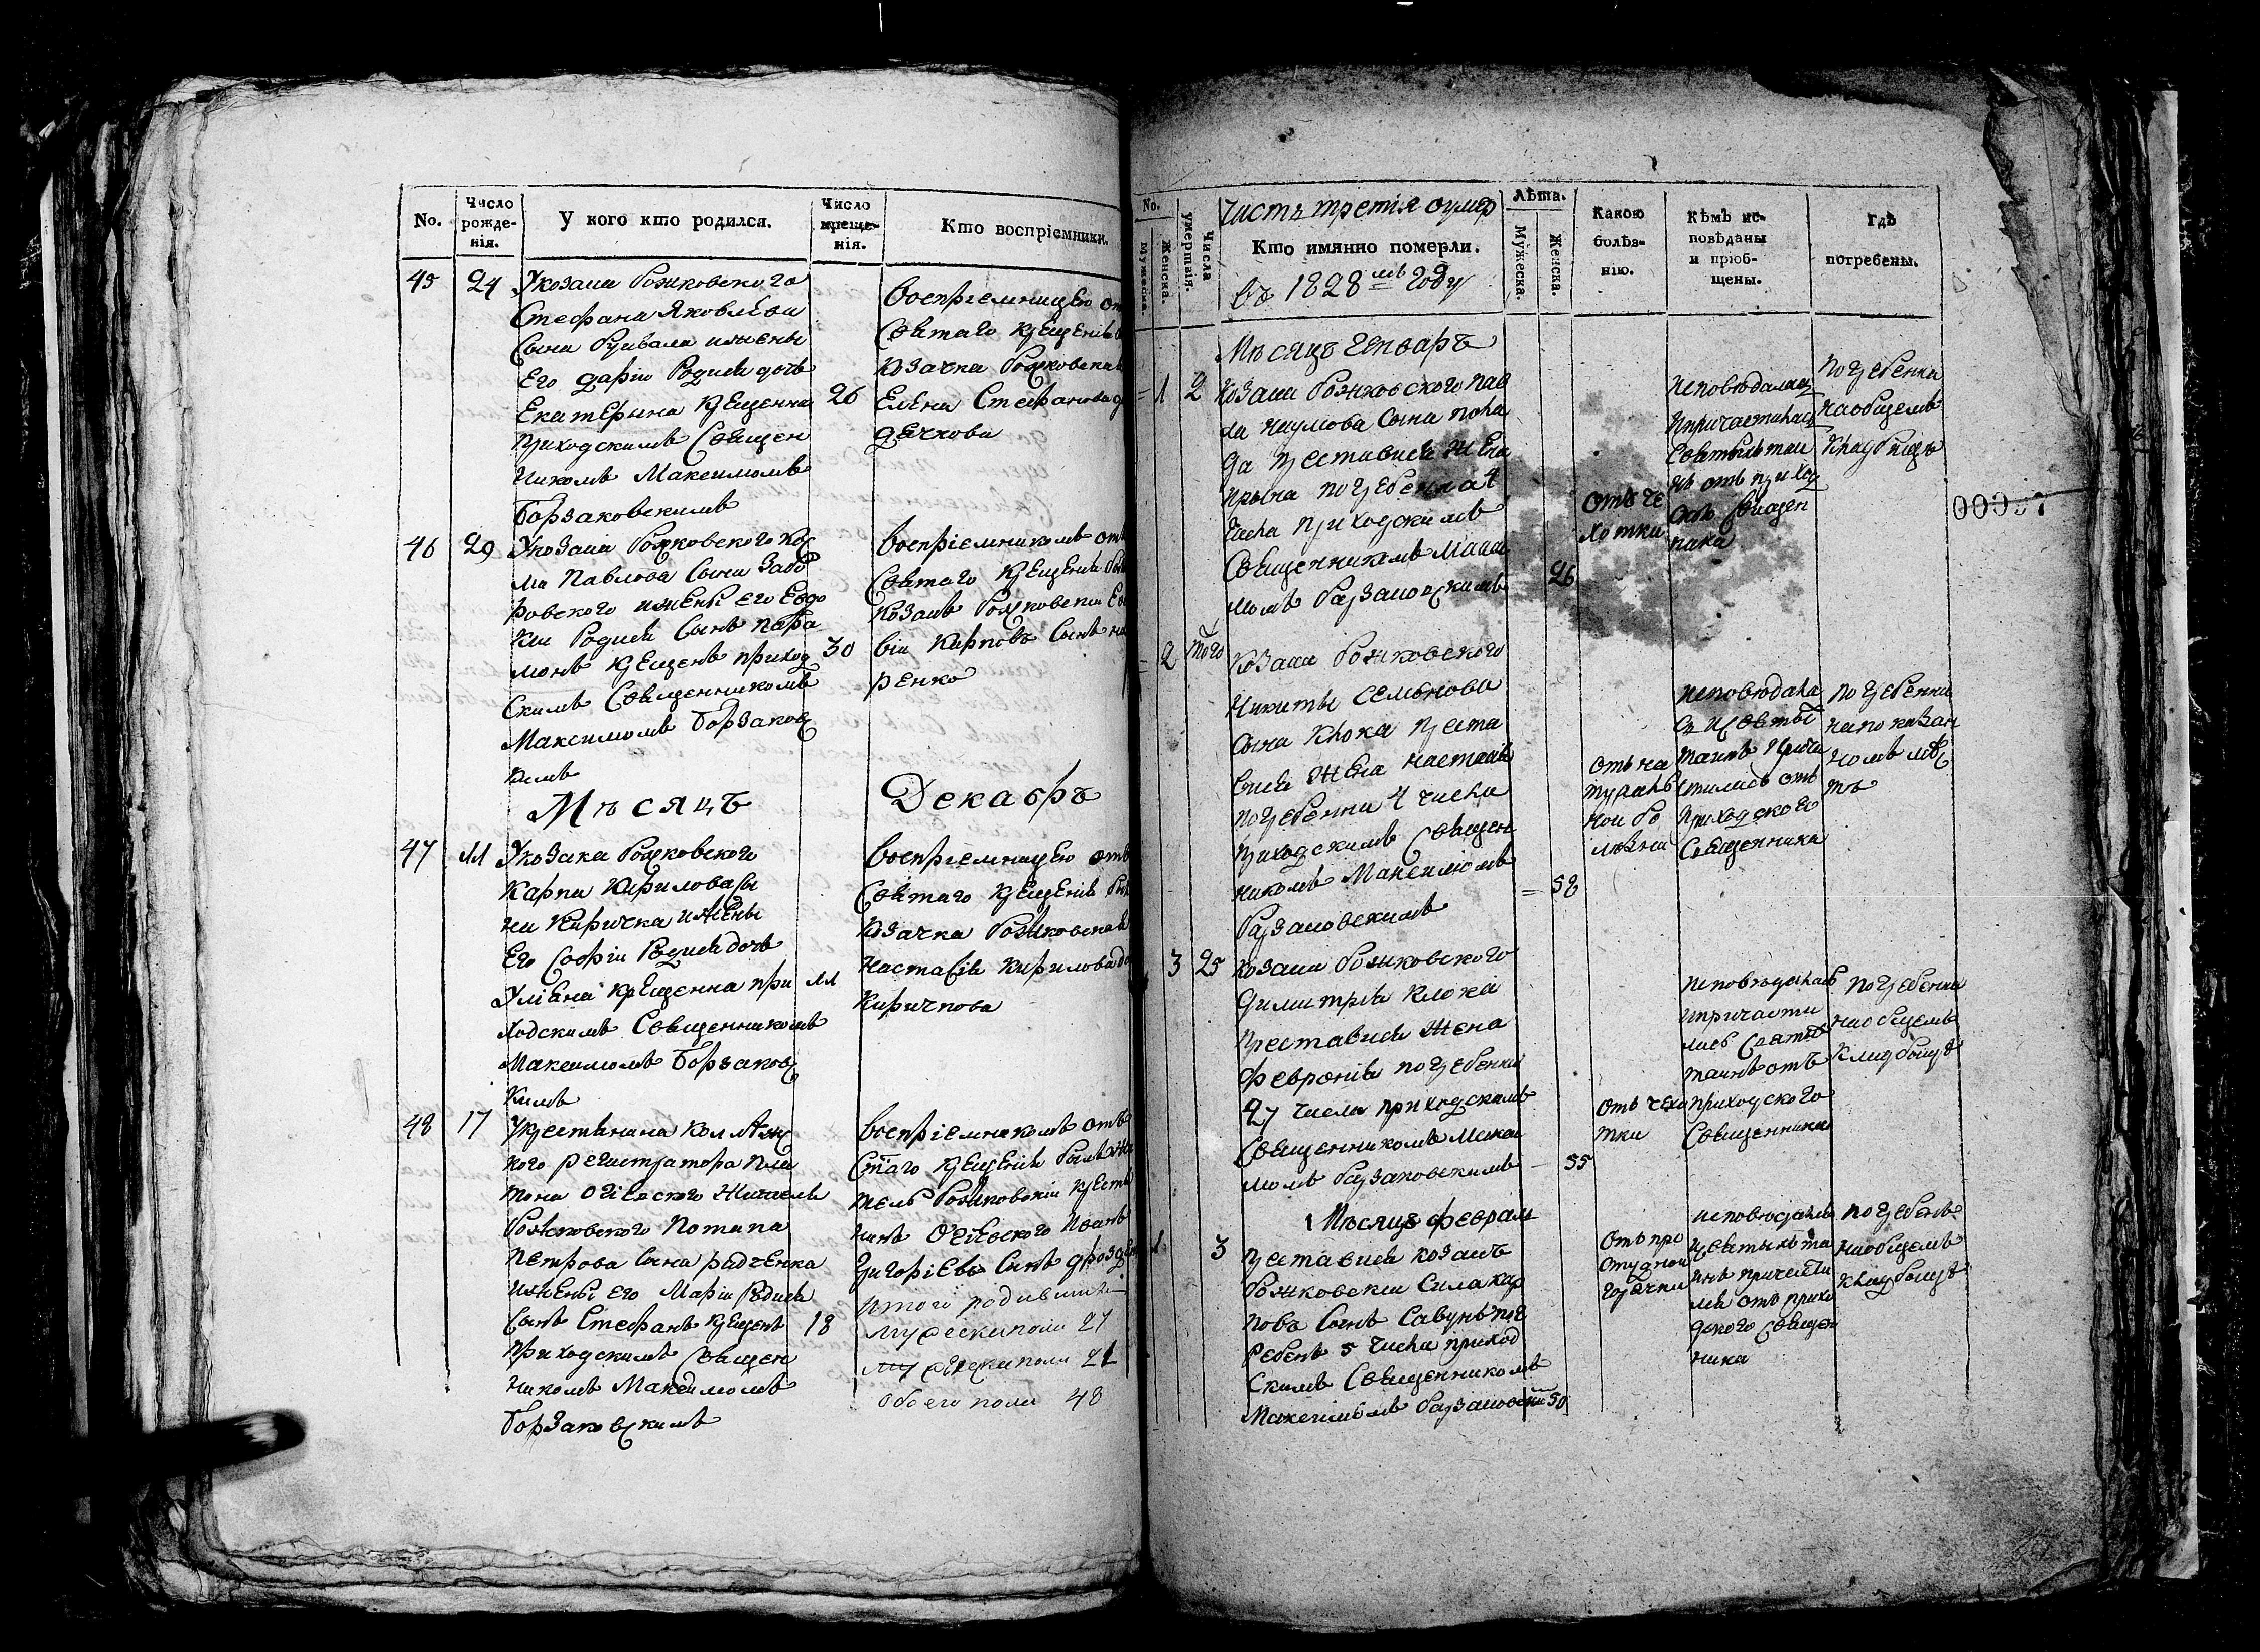 No.
Число рожденія.
У кого кто родился.
Число крещенія.
Кто воспріемники.
45 24
Укозака Рожковского
Стефана Яковлева
Сына
Его дарiи Родися дочь
Екатерына крещенна
Приходскимъ Священ
Никомъ Максимомъ
Борзаковскимъ
26
Воспрiемницею
Святаго крещенія
козачка Рожковская
Елена Стефанова
46 29
Укозака Рожковского
Павлова Сына Забо
ровского ижены его Евдо
кіи Родися Сынъ Пара
монъ крещенъ приход
Скимъ Священникомъ
Максимомъ Борзаков
кимъ
30
Воспрiемникомъ
Святаго крещенія
козакъ Рожковскій
Карповъ Сынъ
ренко
Мѣсяцъ Декабръ
47 11
Укозака Рожковского
Карпа Кирилова Сы
на Киричка ижены
Его Софiи Родися дочь
Уліана крещенна при
ходскимъ Священникомъ
Максимомъ Борзаков
кимъ
11
Воспрiемницею
Святаго крещенія
козачка Рожковская
Настасія Кирилова
Киричкова
48 17
Укрестянина
кого регистратора Пла
тона Огіевского жителя
Рожковского Потапа
Петрова Сына радченка
ижены Его Маріи Родися
Сынъ Стефанъ крещенъ
приходскимъ Священ
никомъ Максимомъ
Борзаковскимъ
18
Воспрiемникомъ
Стаго крещенія
тель Рожковскій
нинъ Огіевского Иванъ
Григорiевъ Сынъ
итого родившихся
мужеска пола 27
женска пола 21
обоего пола 48
No.
Мужеска.
Женска.
Числа умертвія.
Часть третія оумер
Кто имянно померли.
въ 1828мъ Году
Лѣта.
Мужеска.
Женска.
Какою болѣзнію.
Кѣмъ исповѣданы и пріобщены.
Гдѣ погребены.
00057
Мѣсяцъ Генваръ
1 2
козака Рожковского Пав
ла Наумова Сына
преставися Жена
Ирына погребенна 4
Числа Приходскимъ
Священникомъ Макси
момъ Борзаковскимъ
26
Отъ че
хотки
исповѣдалась
ипричастилась
Святыхъ таи
нъ отъ приход
ского Священ
ника
погребенна
наобщемъ
кладбищѣ
2 того
козака Рожковского
Никиты Семенова
Сына Клюка преста
вися Жена Настасія
погребенна 4 числа
приходскимъ Священ
никомъ Максимомъ
Борзаковскимъ
58
отъ на
туралъ
ной бо
лѣзни
исповѣдала
Святыхъ
таинъ Причас
тилась отъ
приходского
Священника
погребенна
напоказан
номъ мѣс
тѣ
3 25
козака Рожковского
Димитрія Клюка
Преставися Жена
Февронія погребенна
27 числа приходскимъ
Священникомъ Макси
момъ Борзаковскимъ
55
отъ чахо
тки
исповѣдалась
ипричасти
лась Святых
таинъ отъ
приходского
Священника
погребенна
наобщемъ
кладбищѣ
Мѣсяцъ Февраль
1 3
Преставися козакъ
Рожковскій Сила Кар
повъ Сынъ Савунъ пог
ребенъ 5 числа приход
Скимъ Священникомъ
Максимомъ Борзаковским
50
отъ про
студной
горячки
исповѣданъ
Святыхъ та
инъ причасти
ся отъ прихо
дского Священ
ника
погребенъ
наобщемъ
кладбищѣ